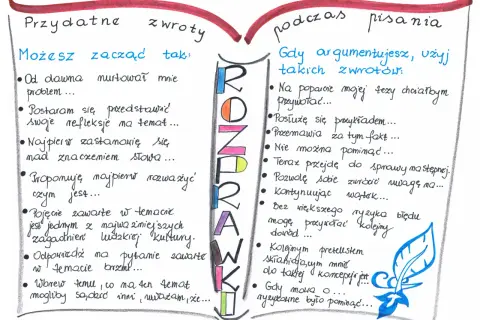 Przydatne zwroty podczas pisania
Możesz zacząć tak:
• Od dawna nurtował mnie
problem...
• Postaram się przedstawić
swoje refleksje na temat...
• Najpierw zastanowię się
nad znaczeniem słowa...
• Proponuję najpierw rozważyć
czym jest...
• Pojęcie zawarte w temacie
jest jednym z najważniejszych
zagadnień ludzkiej kultury.
• Odpowiedź na pytanie zawarte
w temacie brzmi...
• Wbrew temu, co na ten temat
mogliby sądzić inni, uważam, że...
ROZPRAWKI
Gdy argumentujesz, użyj
takich zwrotów:
• Na poparcie mojej tezy chciałbym
przywołać...
• Posłużę się przykładem...
• Przemawia za tym fakt...
• Nie można pominąć...
• Teraz przejdę do sprawy następnej.
• Pozwolę sobie zwrócić uwagę na...
• Kontynuując wątek...
• Bez większego ryzyka błędu
mogę przywołać kolejny
dowód...
• Kolejnym pretekstem
skłaniającym mnie
do takiej koncepcji jest
• Gdy mowa o...
ryzykowne było pominąć...